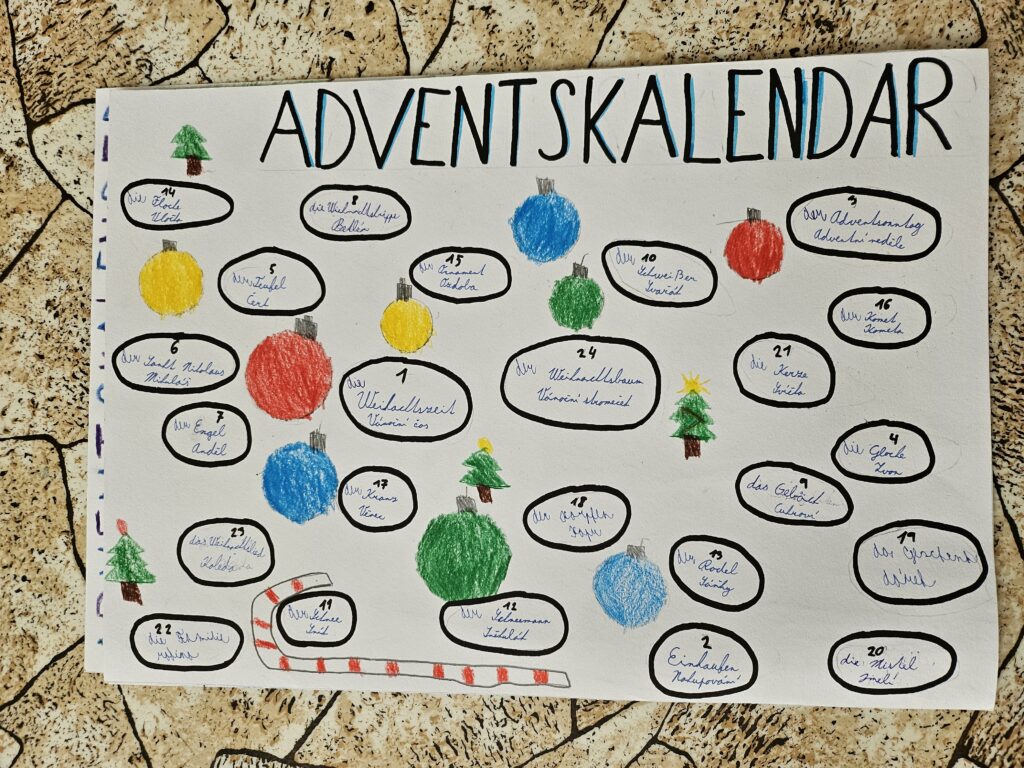 ADVENTSKALENDAR
14
die Flocke
Vločka
8
die Weihnachtskrippe
Betlém
3
der Adventsonntag
Adventní neděle
5
der Teufel
Čert
15
der Ornament
Ozdoba
10
der
Schweißer
Svařák
16
der Komet
Kometa
6
der Sankt Nikolaus
Mikuláš
1
die
Weihachtszeit
Vánoční čas
24
der Weihnachtsbaum
Vánoční stromeček
21
die Kerze
Svíčka
7
der Engel
Anděl
4
die Glocke
Zvon
17
der Kranz
Věnec
9
das
Cukroví
18
der Karpfen
Kapr
23
das Weihnachtslied
Koleda
13
der Rodel
Sáňky
19
das Geschenk
dárek
11
der Schnee
Sníh
12
der Schneemann
Sněhulák
22
die Familie
rodina
2
Einkaufen
Nakupování
20
die Mistel
Jmelí